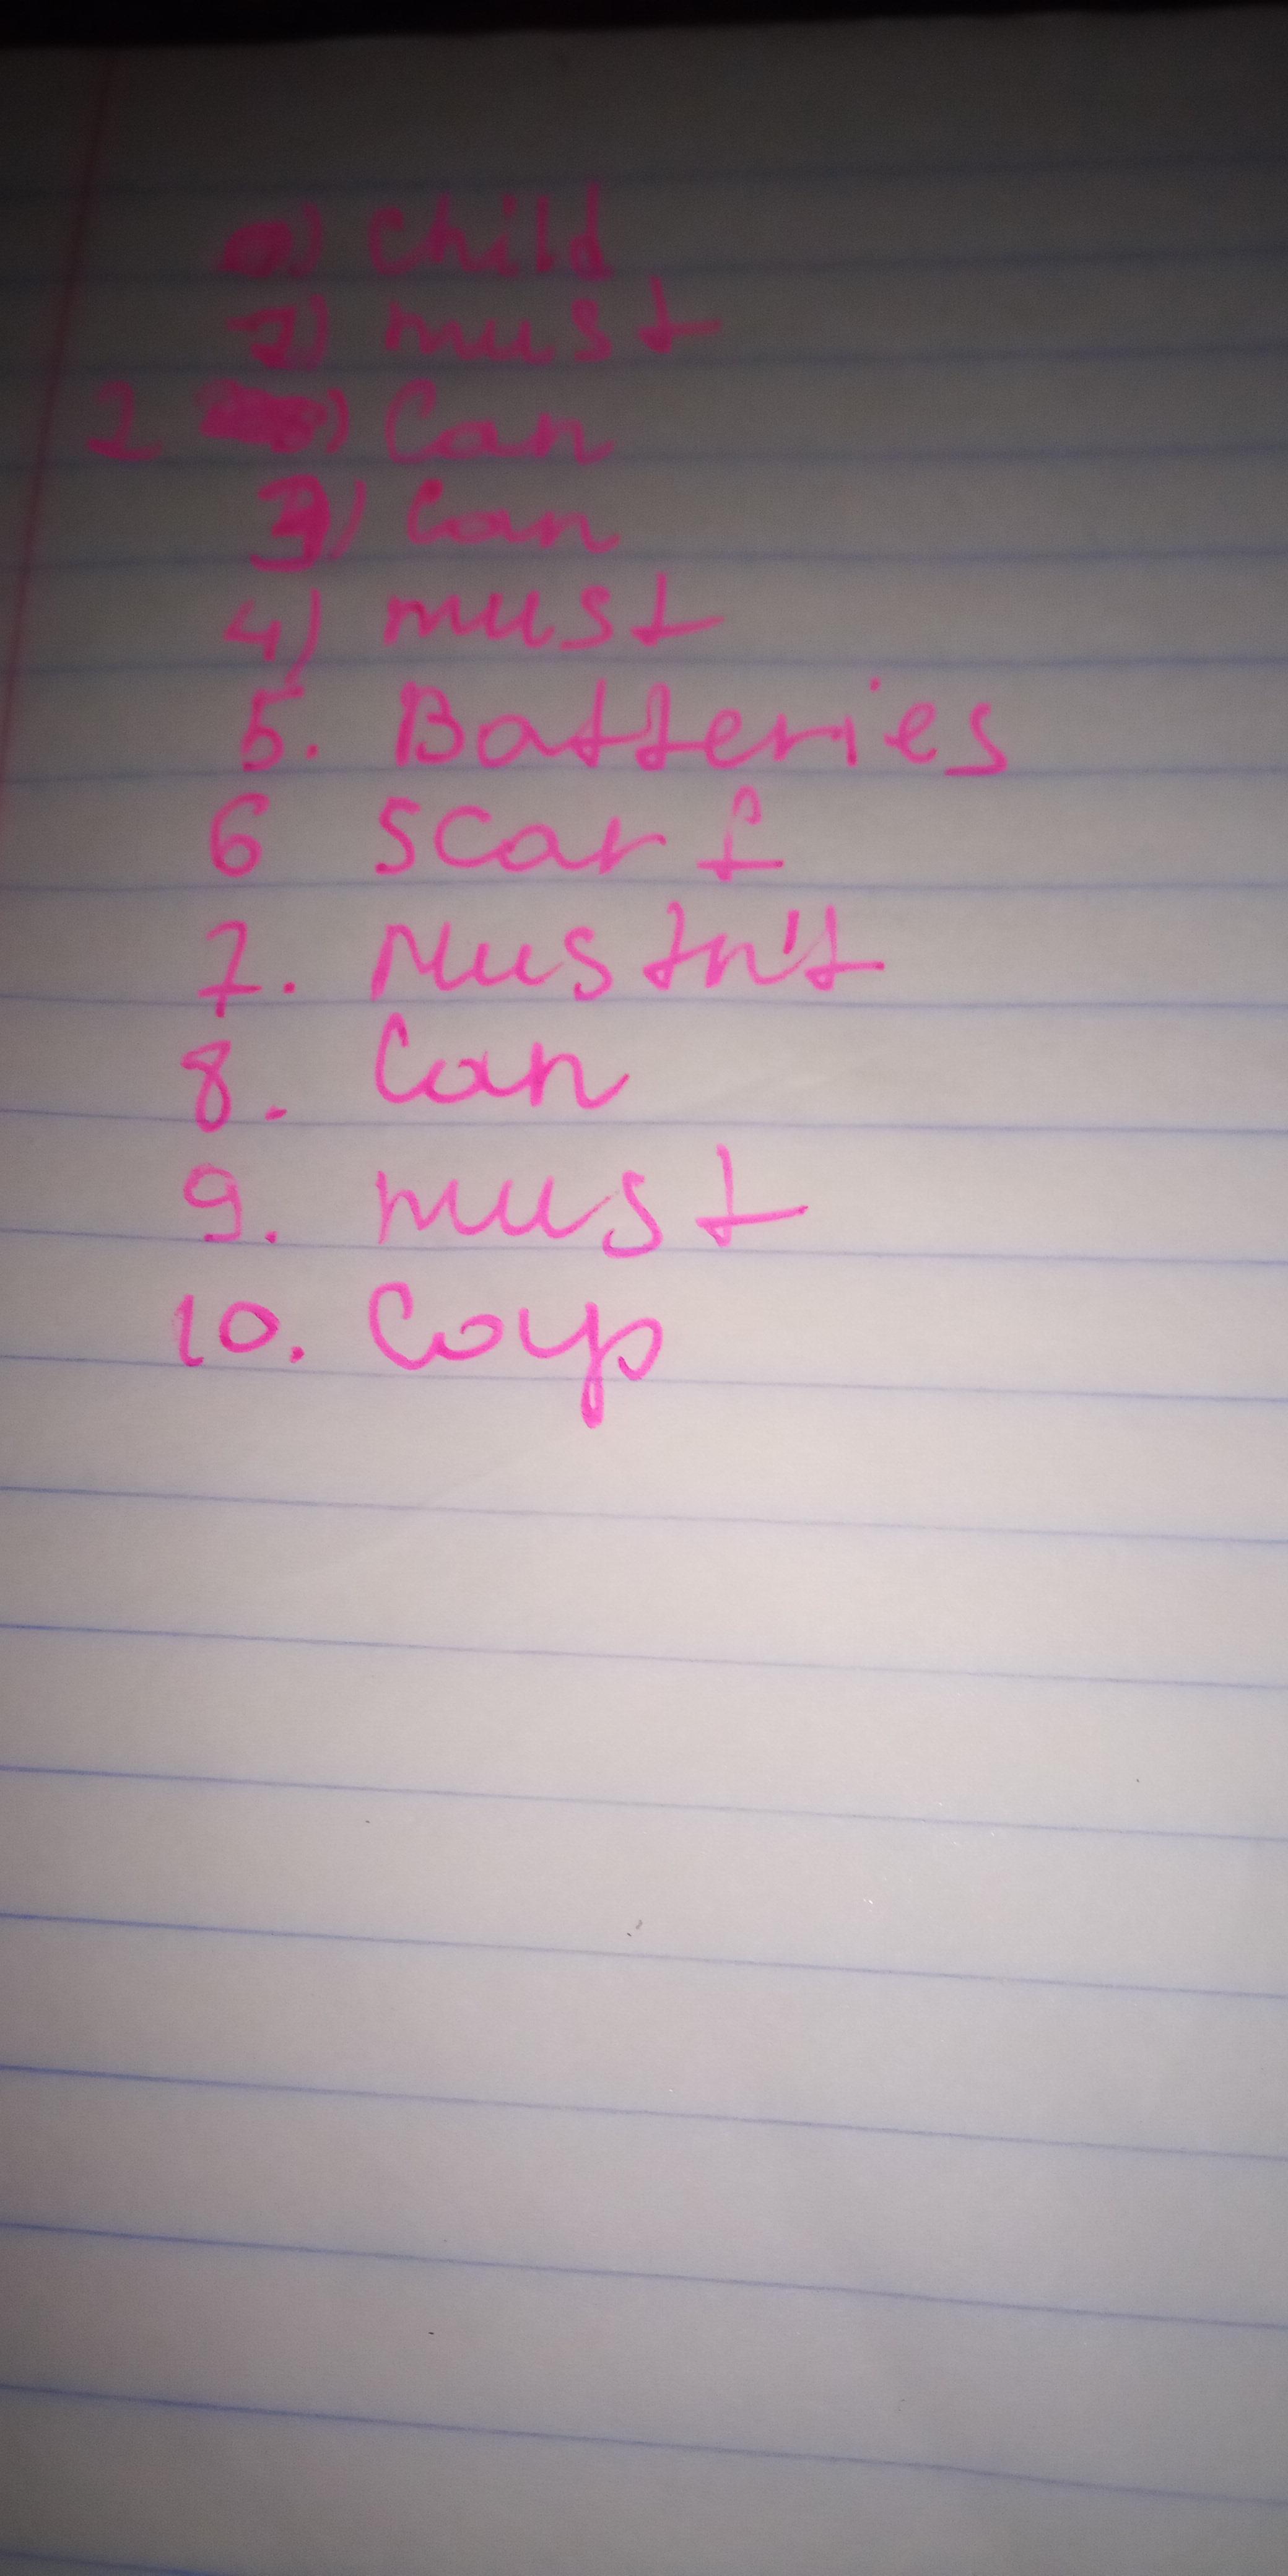 ) Child
1) must
2 ) Can
3) Can
4) must
5. Batteries
6 Scarf
7. Mustn't
8. Can
9. must
10. Coyp